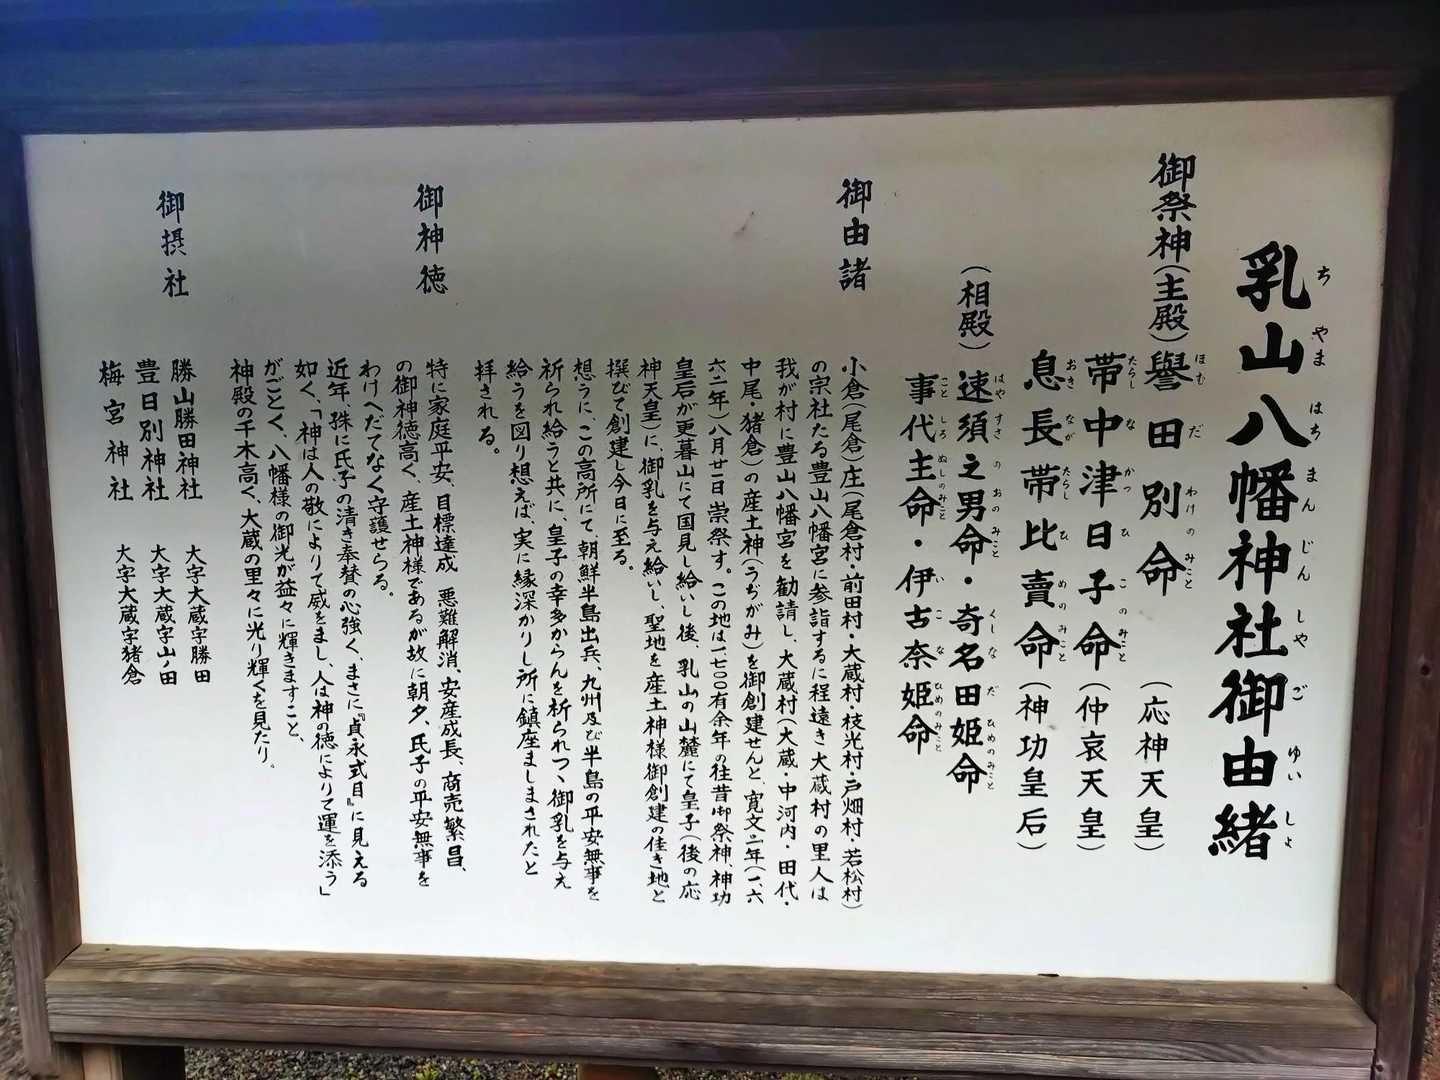 乳山八幡神社御由緒
ちやまはちまんじんしやごゆいしょ
御祭神(主殿)譽田別命(応神天皇)
ほむだわけのみこと
帯中津日子命(仲哀天皇)
たらしなかつひこのみこと
息長帯比賣命(神功皇后)
おきながたらしひめのみこと
(相殿)速須之男命・奇名田姫命
はやすさのおのみこと くしなだひめのみこと
事代主命・伊古奈姫命
ことしろぬしのみこと いこなひめのみこと
御由諸
小倉(尾倉)庄(尾倉村・前田村・大蔵村・枝光村・戸畑村・若松村)
の宗社たる豊山八幡宮に参詣するに程遠き大蔵村の里人は
我が村に豊山八幡宮を勧請し、大蔵村(大蔵・中河内・田代・
中尾・猪倉)の産土神(うぢがみ)を御創建せんと、寛文二年(一六
六二年)八月廿二日崇祭す。この地は一七〇〇有余年の往昔御祭神、神功
皇后が更暮山にて国見し給いし後、乳山の山麓にて皇子(後の応
神天皇)に、御乳を与え給いし、聖地を産土神様御創建の佳き地と
撰びて創建し今日に至る。
想うに、この高所にて、朝鮮半島出兵、九州及び半島の平安無事を
祈られ給うと共に、皇子の幸多からんを祈られつゝ御乳を与え
給うを図り想えば、実に縁深かりし所に鎮座ましまされたと
拝される。
御神徳
特に家庭平安、目標達成 悪難解消、安産成長、商売繁昌、
の御神徳高く、産土神様であるが故に朝夕、氏子の平安無事を
わけへだてなく守護せらる。
近年、殊に氏子の清き奉賛の心強く、まさに『貞永式目』に見える
如く、「神は人の敬によりて威をまし、人は神の徳によりて運を添う」
がごとく、八幡様の御光が益々に輝きますこと、
神殿の千木高く、大蔵の里々に光り輝くを見たり。
御摂社
勝山勝田神社 大字大蔵字勝田
豊日別神社 大字大蔵字山ノ田
梅宮神社 大字大蔵字猪倉